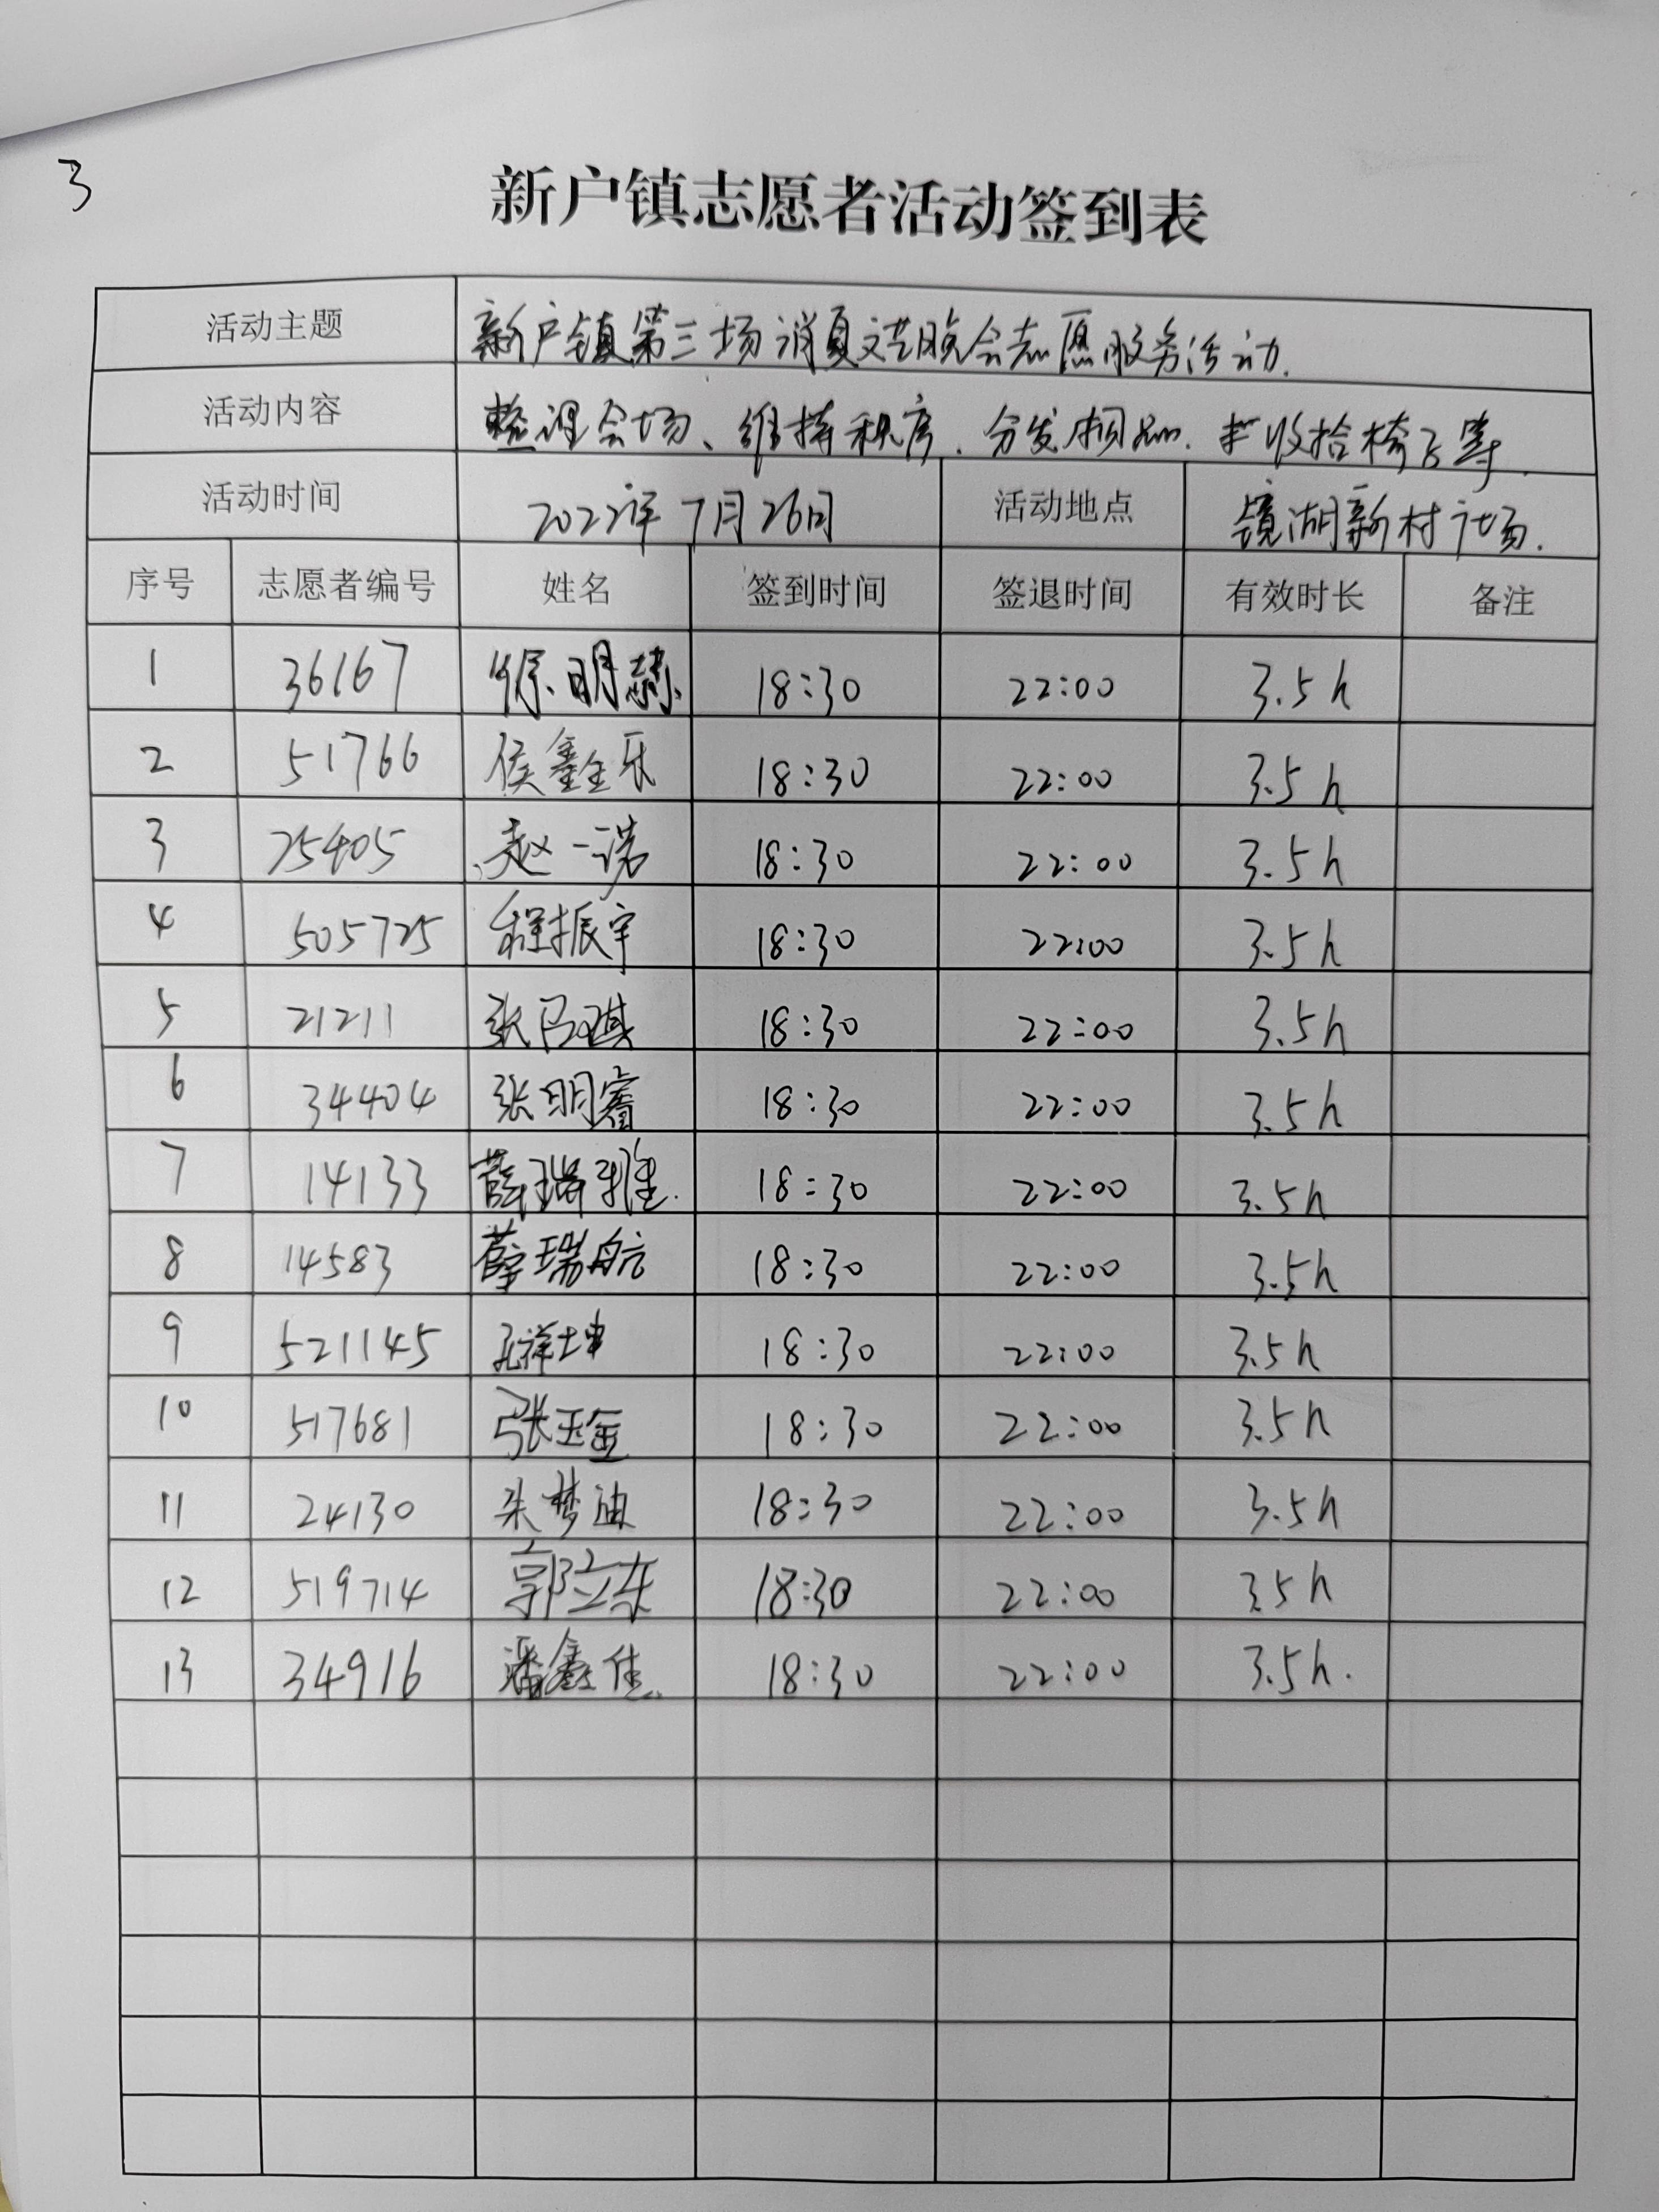 3
新户镇志愿者活动签到表
活动主题 新户镇第三场消夏文艺晚会志愿服务活动.
活动内容 整理会场、维持秩序. 分发 收拾椅子等.
活动时间 2022年7月26日 活动地点 镜湖新村广场.
序号 志愿者编号 姓名 签到时间 签退时间 有效时长 备注
1 36167 徐明赫 18:30 22:00 3.5h
2 51766 侯鑫乐 18:30 22:00 3.5h
3 25405 赵一诺 18:30 22:00 3.5h
4 505725 程振宇 18:30 22:00 3.5h
5 21211 张 琪 18:30 22:00 3.5h
6 34404 张明睿 18:30 22:00 3.5h
7 14133 薛瑞雅. 18:30 22:00 3.5h
8 14583 薛瑞航 18:30 22:00 3.5h
9 521145 孔祥坤 18:30 22:00 3.5h
10 517681 张玉金 18:30 22:00 3.5h
11 24130 朱梦迪 18:30 22:00 3.5h
12 519714 郭立东 18:30 22:00 3.5h
13 34916 潘鑫佳 18:30 22:00 3.5h.